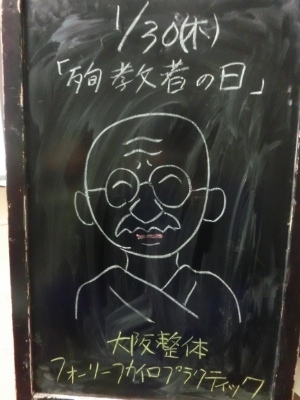 1/30(木)
「殉教者の日」
大阪整体
フォーリーフカイロプラクティック